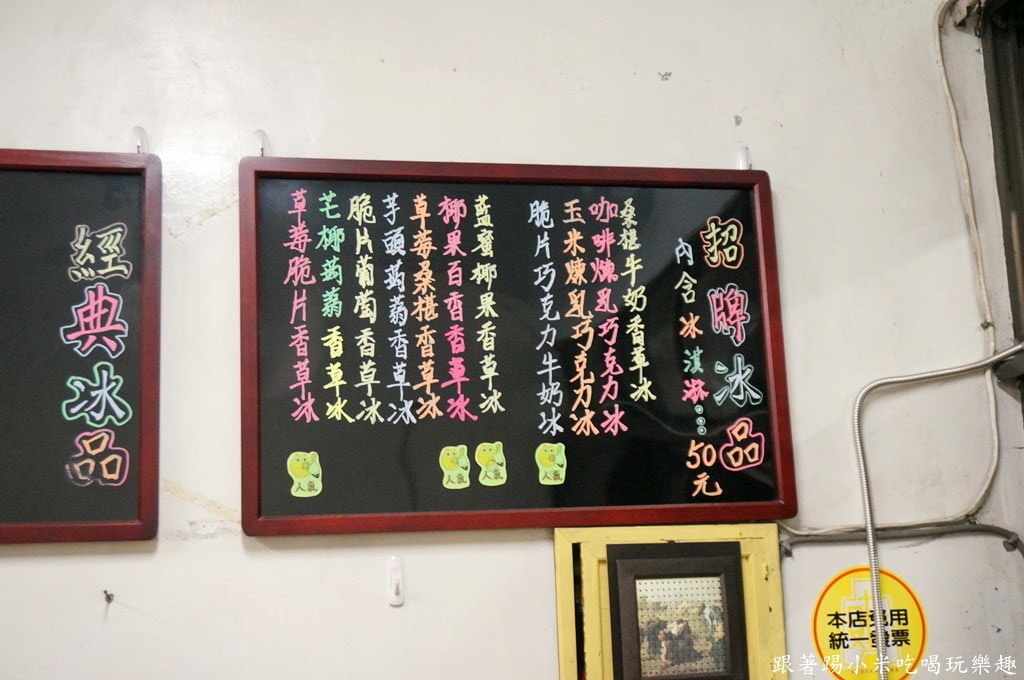 招牌冰品
內含冰淇淋…50元
桑椹牛奶香草冰
咖啡煉乳巧克力冰
玉米煉乳巧克力冰
脆片巧克力牛奶冰
藍蜜椰果香草冰
椰果百香香草冰
草莓桑椹香草冰
芋頭蒟蒻香草冰
脆片葡萄香草冰
芒椰蒟蒻香草冰
草莓脆片香草冰
人氣
人氣
人氣
人氣
經典冰品
本店免用
統一發票
跟著踢小米吃喝玩樂趣